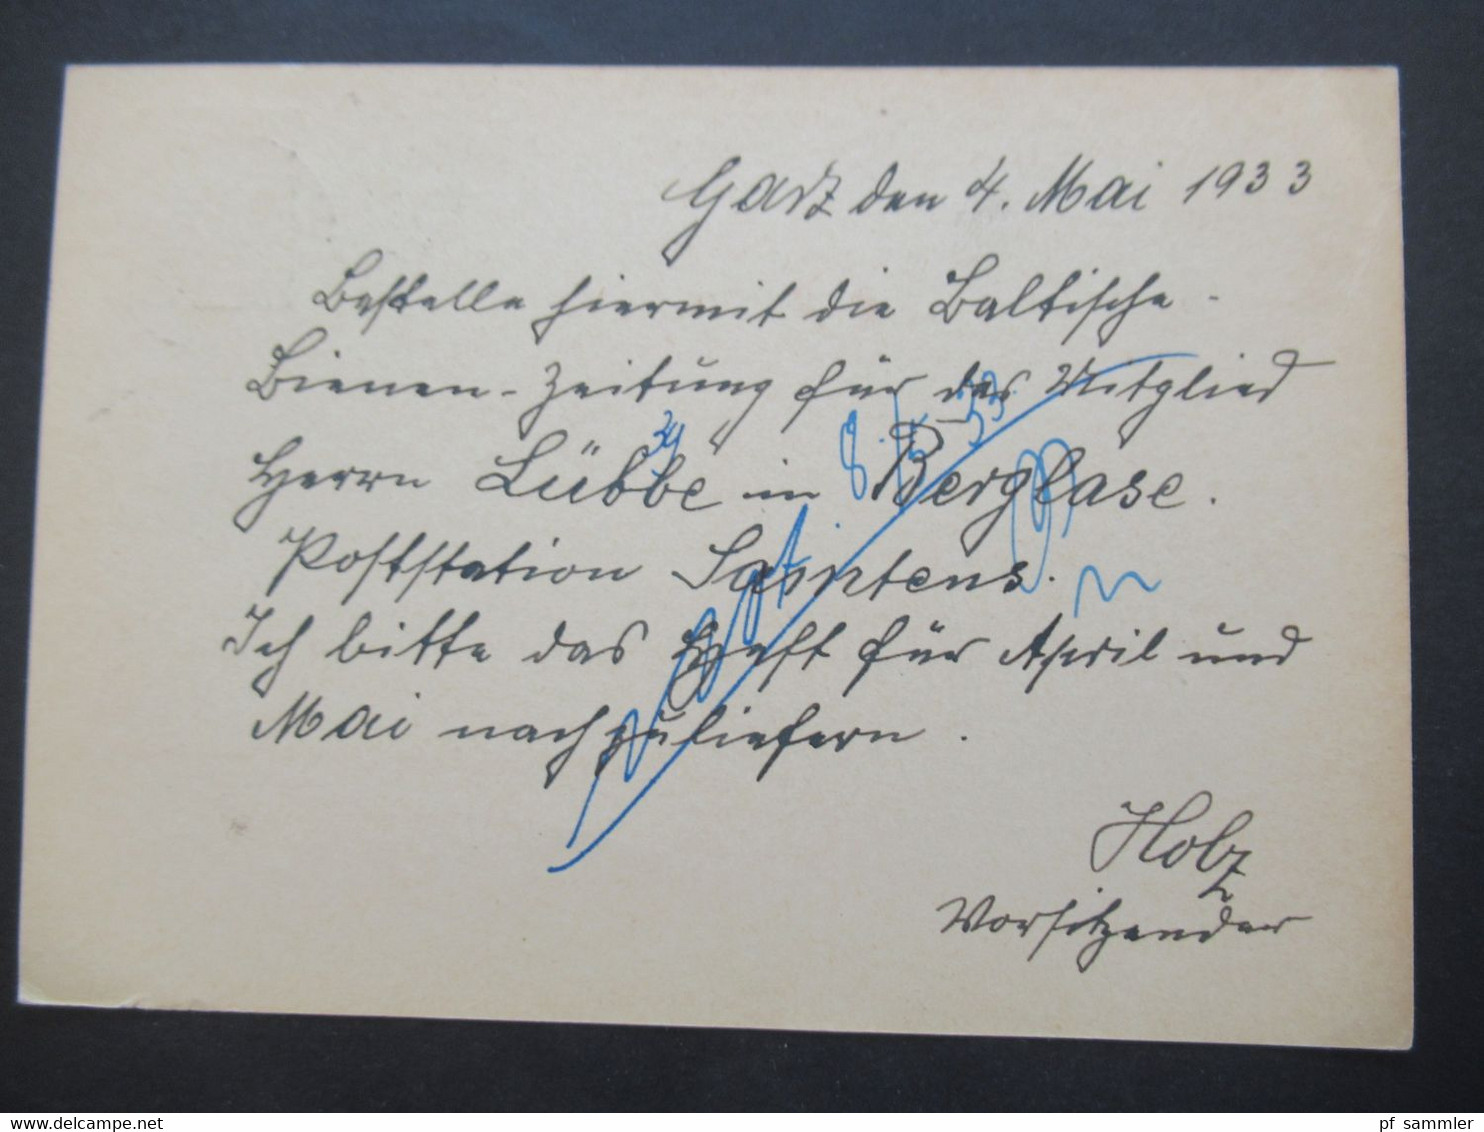 Garz den 4. Mai 1933
Bestelle hiermit die Baltische-
Bienen-Zeitung für das Mitglied
Herrn Lübbe in Berglase.
Poststation Samtens.
Ich bitte das Heft für April und
Mai nachzuliefern.
Holz
Vorsitzender
www.delcampe.net
pf_sammler